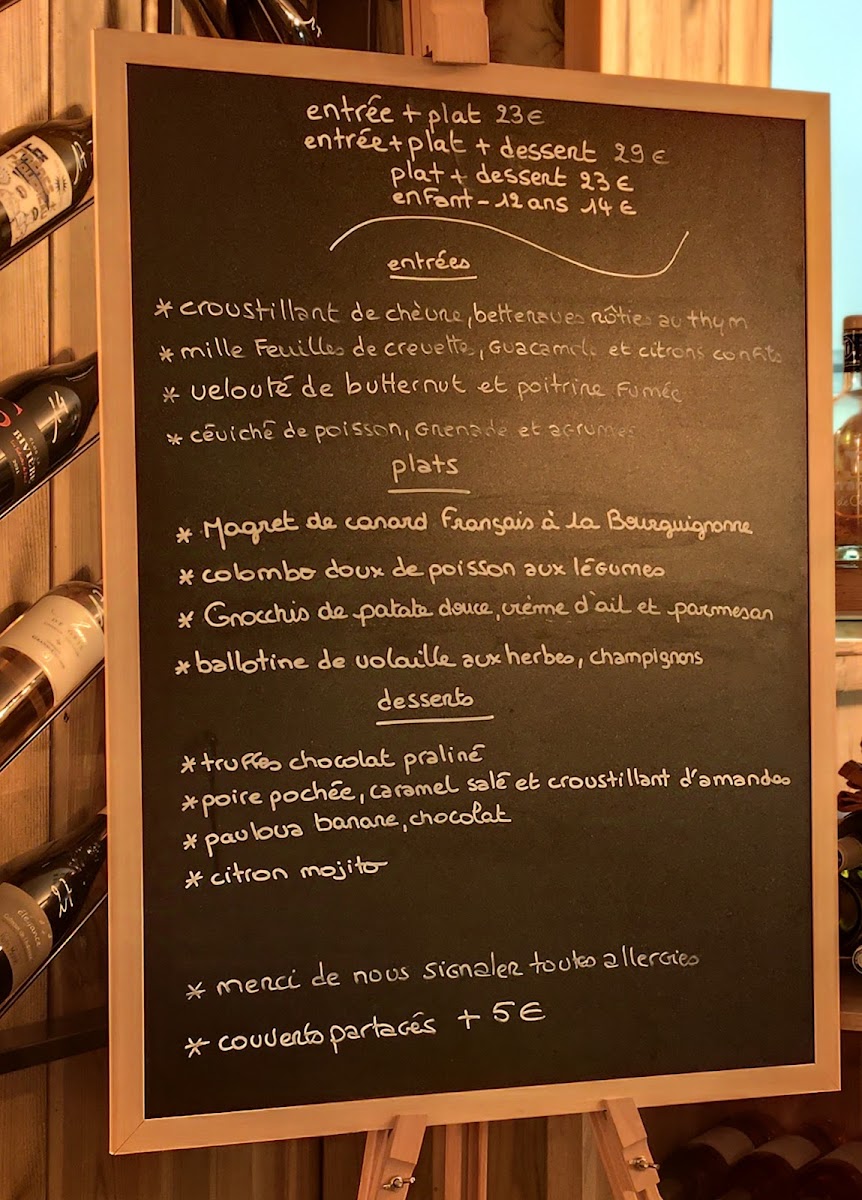 entrée + plat 23€
entrée + plat + dessert 29€
plat + dessert 23€
enfant - 12 ans 14€
entrées
* croustillant de chèvre, betteraves rôties au thym
* mille Feuilles de crevette, Guacamole et citrons confits
* velouté de butternut et poitrine Fumée
* céviché de poisson, Grenade et agrumes
plats
* Magret de canard Français à la Bourguignonne
* colombo doux de poisson aux légumes
* Gnocchis de patate douce, crème d'ail et parmesan
* ballotine de volaille aux herbes, champignons
desserts
* truffes chocolat praliné
* poire pochée, caramel salé et croustillant d'amandes
* pavlova banane, chocolat
* citron mojito
* merci de nous signaler toutes allergies
* couverts partagés + 5€
RIVIÈRE
élégance